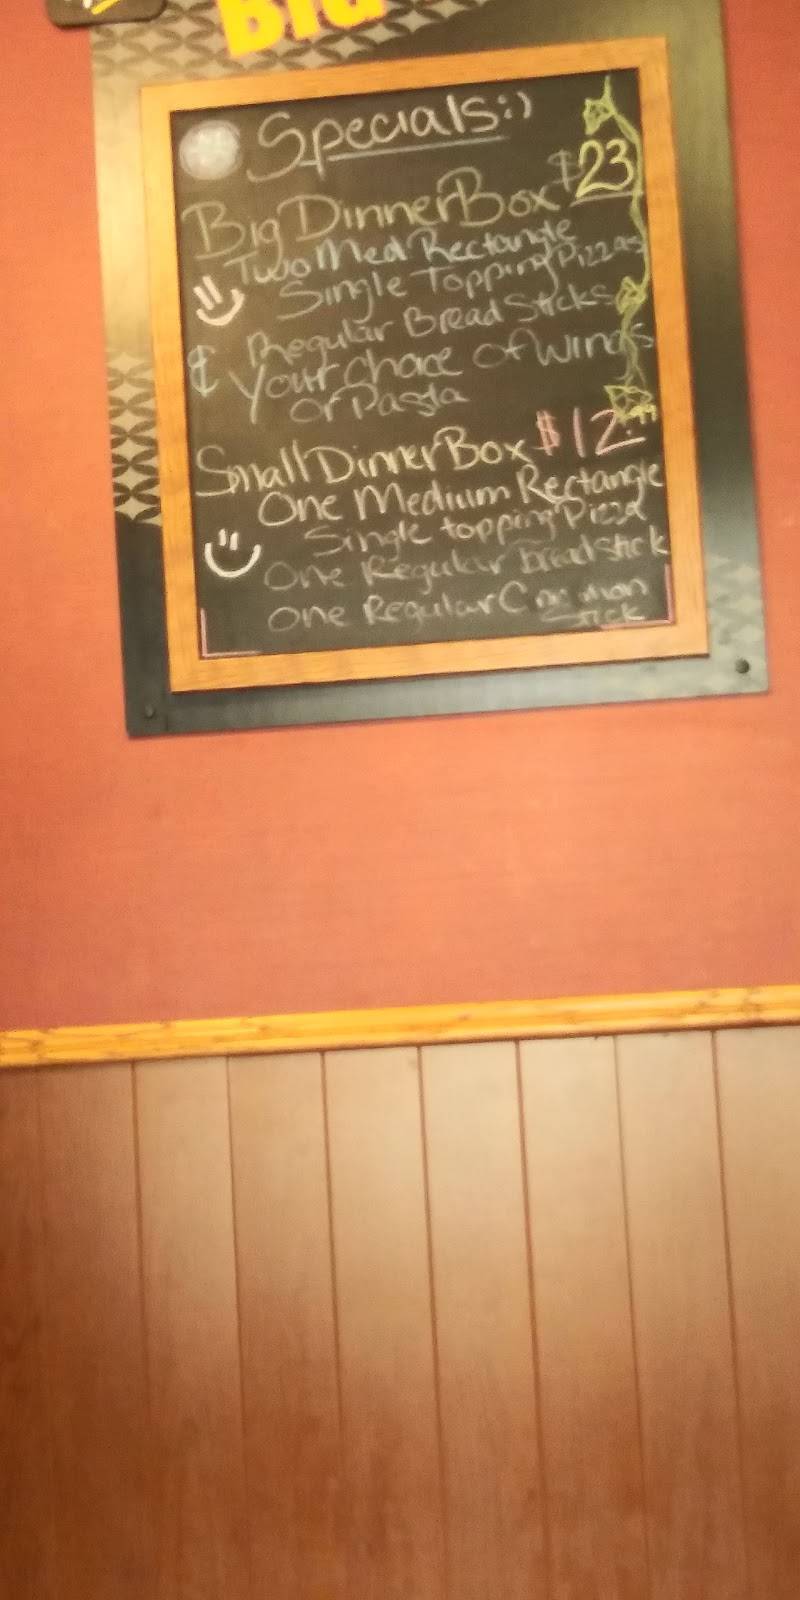 Specials:)
Big Dinner Box $23
Two Med Rectangle
Single Topping Pizzas
Regular Bread Sticks
& Your Choice of Wings
or Pasta
Small Dinner Box $12.99
One Medium Rectangle
Single topping Pizza
One Regular breadstick
One Regular Cinnamon
Stick